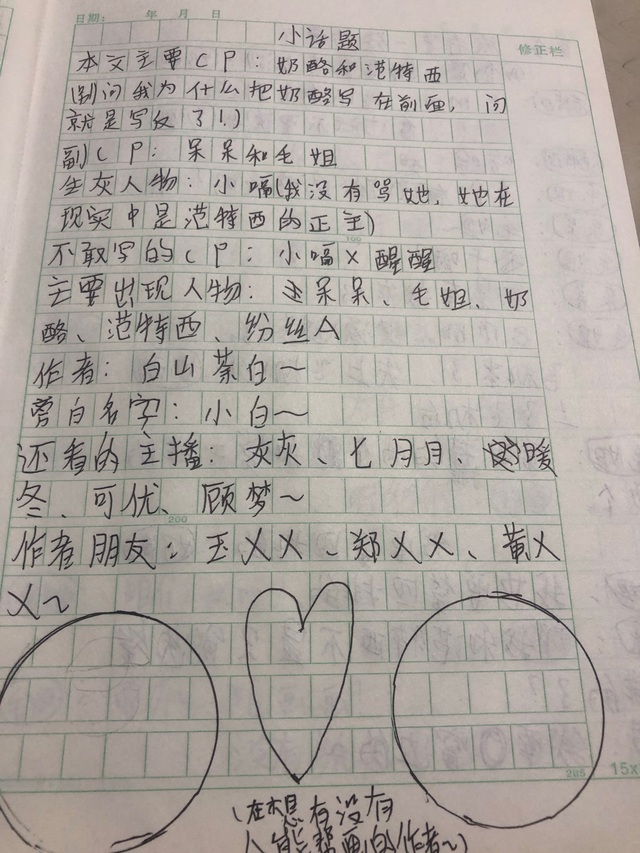 日期： 年 月 日
小话题
修正栏
本文主要CP：奶酪和范特西
(别问我为什么把奶酪写在前面，问
就是写反了！)
副CP：呆呆和毛姐
生灰人物：小嗝(我没有骂她，她在
现实中是范特西的正主)
100
不敢写的CP：小嗝X醒醒
主要出现人物：呆呆、毛姐、奶
酪、范特西、粉丝A
作者：白山茶白～
旁白名字：小白～
还看的主播：灰灰、七月月、暖
冬、可优、顾梦～
200
作者朋友：王XX、郑XX、黄X
X～
285
15x
(在想有没有
人能帮画的作者～)